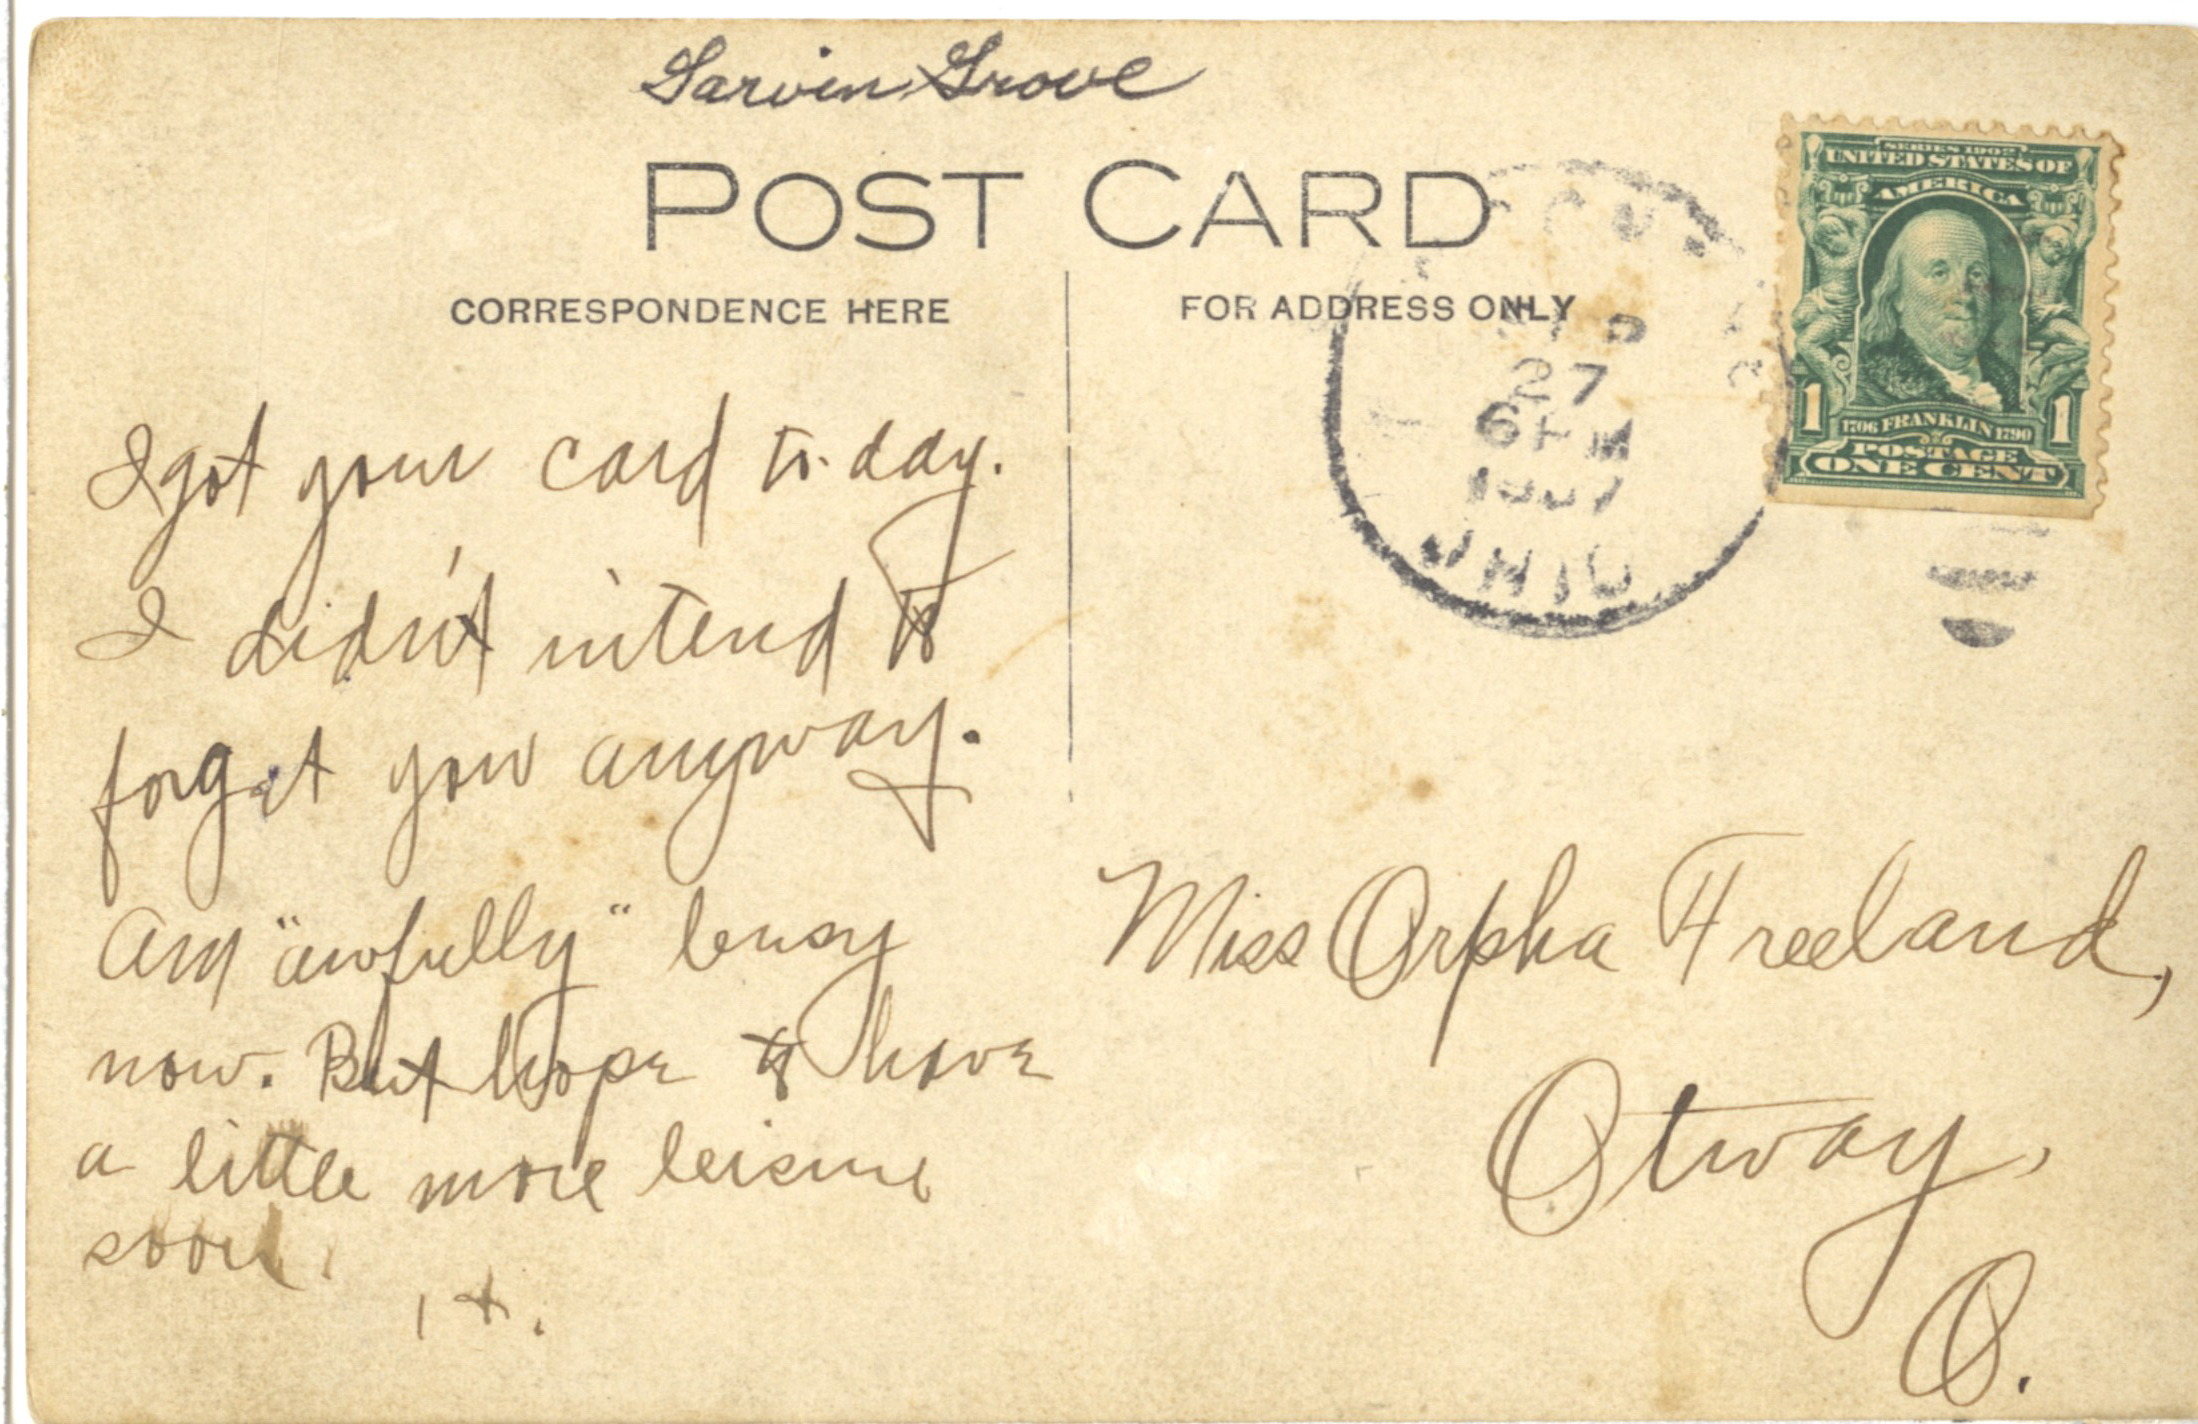 Garvin Grove
POST CARD
CORRESPONDENCE HERE
FOR ADDRESS ONLY
27
6 PM
1907
OHIO
SERIES 1902
UNITED STATES OF
AMERICA
1 1706 FRANKLIN 1790 1
POSTAGE
ONE CENT
I got your card to-day.
I didn't intend to
forget you anyway.
Am "awfully" busy
now. But hope to have
a little more leisure
soon.
Miss Orpha Freeland,
Otway,
O.